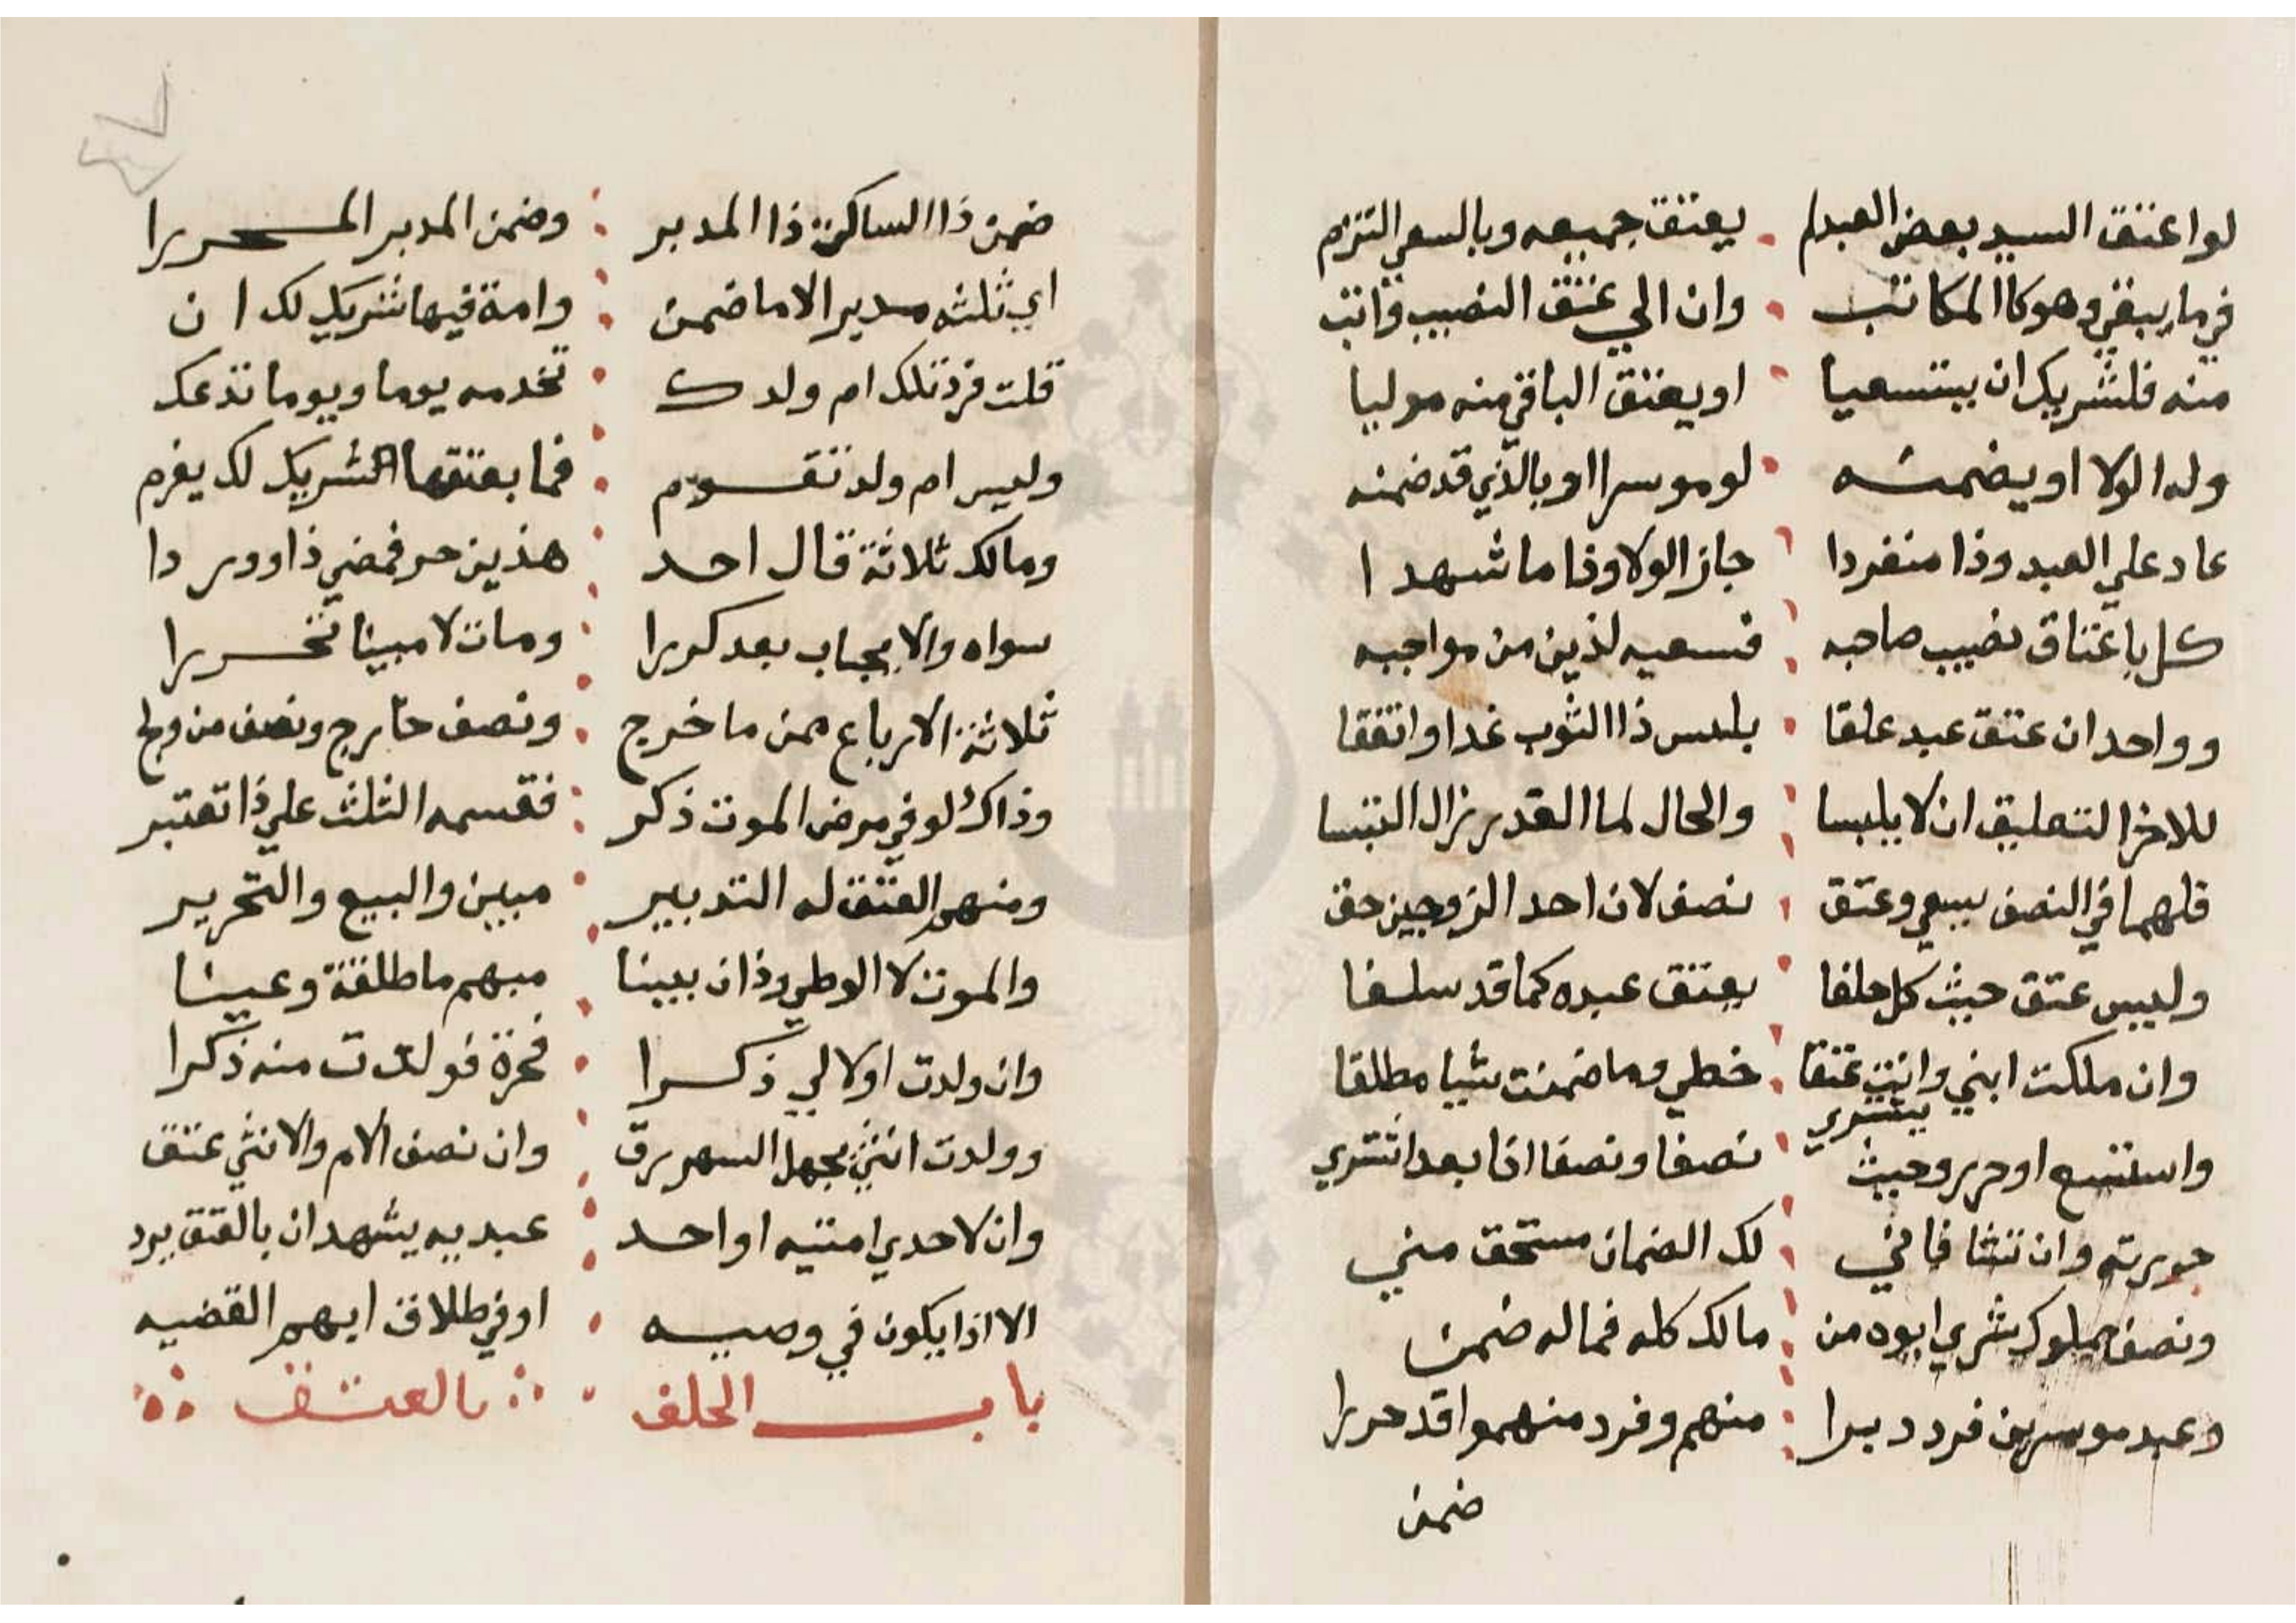 لو اعتق السيد بعض العبد لم يعتق جميعه وبالسعي التزم
في ما يبقي وهو كا المكاتب وان الي عتق النصيب وانب
منه فلشريك ان يستسعيا او يعتق الباقي منه موليا
وله الولا او يضمنه لو موسرا او بالذي قد ضمنه
عاد علي العبد وذا منفردا جاز الولا وذا ما شهدا
كل باعتاق نصيب صاحبه فسعيه لذين من مواجبه
وواحد ان عتق عبد علقا بلبس ذا الثوب غدا واتفقا
للاخر التعليق ان لا يلبسا والحال لما القدر زال التبسا
فلهما في النصف يسعي وعتق نصف لان احد الزوجين حق
وليس عتق حيث كل حلفا يعتق عبده كما قد سلفا
وان ملكت ابني وانت عتقا حظي وما ضمنت شيا مطلقا
واستسع او حرر وحيث يشتري نصفا ونصفا اذا بعد اشتري
حررته وان تشا فاني لك الضمان مستحق مني
ونصف مملوك شري ابوه من مالك كله فماله ضمن
وعبد موسرين فرد دبرا منهم وفرد منهموا قد حررا
ضمن
ضمن ذا الساكن ذا المدبر وضمن المدبر المحررا
اي ثلثه مدبر الاما ضمن وامة فيها شريك لك ان
قلت فرد تلك ام ولدك تخدمه يوما ويوما تدعك
وليس ام ولد تقوم فما بعتقها الشريك لك يغرم
ومالك ثلاثة قال احد هذين حر فمضي ذا وور دا
سواه والايجاب بعد كررا ومات لا مبينا تحررا
ثلاثة الارباع ممن ما خرج ونصف خارج ونصف من ولج
وذاك لو في مرض الموت ذكر فقسمه الثلث علي ذا تعتبر
ومنهم العتق له التدبير مبين والبيع والتحرير
والموت لا الوطي وذان بينا مبهم ما طلقة وعينا
وان ولدت اولا لي ذكرا فحرة فولدت منه ذكرا
وولدت انثي بجهل السهم رق وان نصف الام والانثي عتق
وان لاحدي امتيه او احد عبديه يشهدان بالعتق يرد
الا اذا يكون في وصيه او في طلاق ابهم القضيه
باب الحلف بالعتق